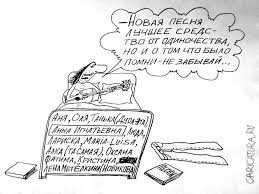 –НОВАЯ ПЕСНЯ
ЛУЧШЕЕ СРЕДС-
ТВО ОТ ОДИНОЧЕСТВА,
НО И О ТОМ ЧТО БЫЛО
ПОМНИ-НЕ ЗАБЫВАЙ...
АНЯ, ОЛЯ, ТАНЬКА
АННА ИГНАТЬЕВНА, ЛЮДА,
ЛАРИСКА, МАRIA-LUISA,
АЛКА (ТА САМАЯ), ОКСАНА
ФАТИМА, КРИСТИНА,
ЛЕНА МОТЕЛКИНА, НОВИКОВА
CARICATURA.RU